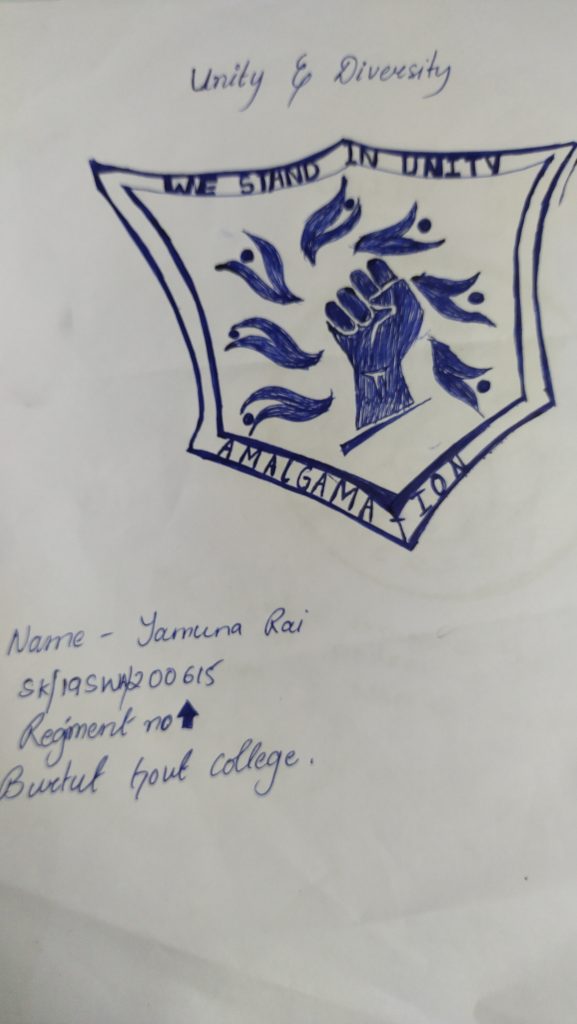 Unity & Diversity
WE STAND IN UNITY
AMALGAMA-ION
Name - Yamuna Rai
SK/19SWA/200615
Regiment no
Burtuk Govt College.